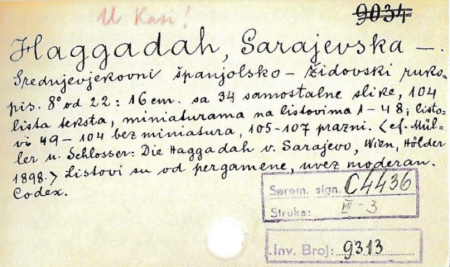 U Kasi!
9034
Haggadah, Sarajevska —.
Srednjevjekovni španjolsko-židovski ruko-
pis. 8° od 22 : 16 cm. sa 34 samostalne slike, 104
lista teksta, miniaturama na listovima 1-48; listo-
vi 49-104 bez miniatura, 105-107 prazni. <cf. Mül-
ler u. Schlosser: Die Haggadah v. Sarajevo, Wien, Hölder
1898.> Listovi su od pergamene, uvez moderan.
Codex.
Sarem. sign. C4436
Struka: III-3
Inv. Broj: 9313